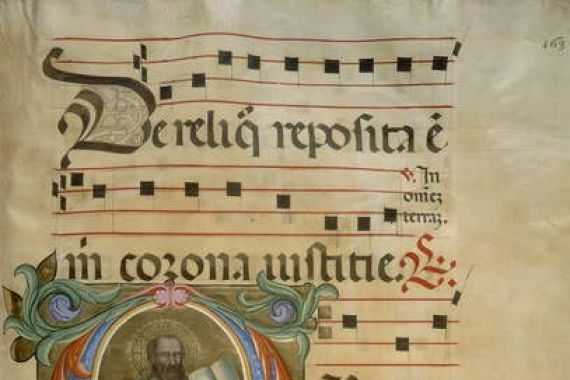 De reliq̄ reposita ē
In
om̄ez
terraz.
m̄ corona iustitie.